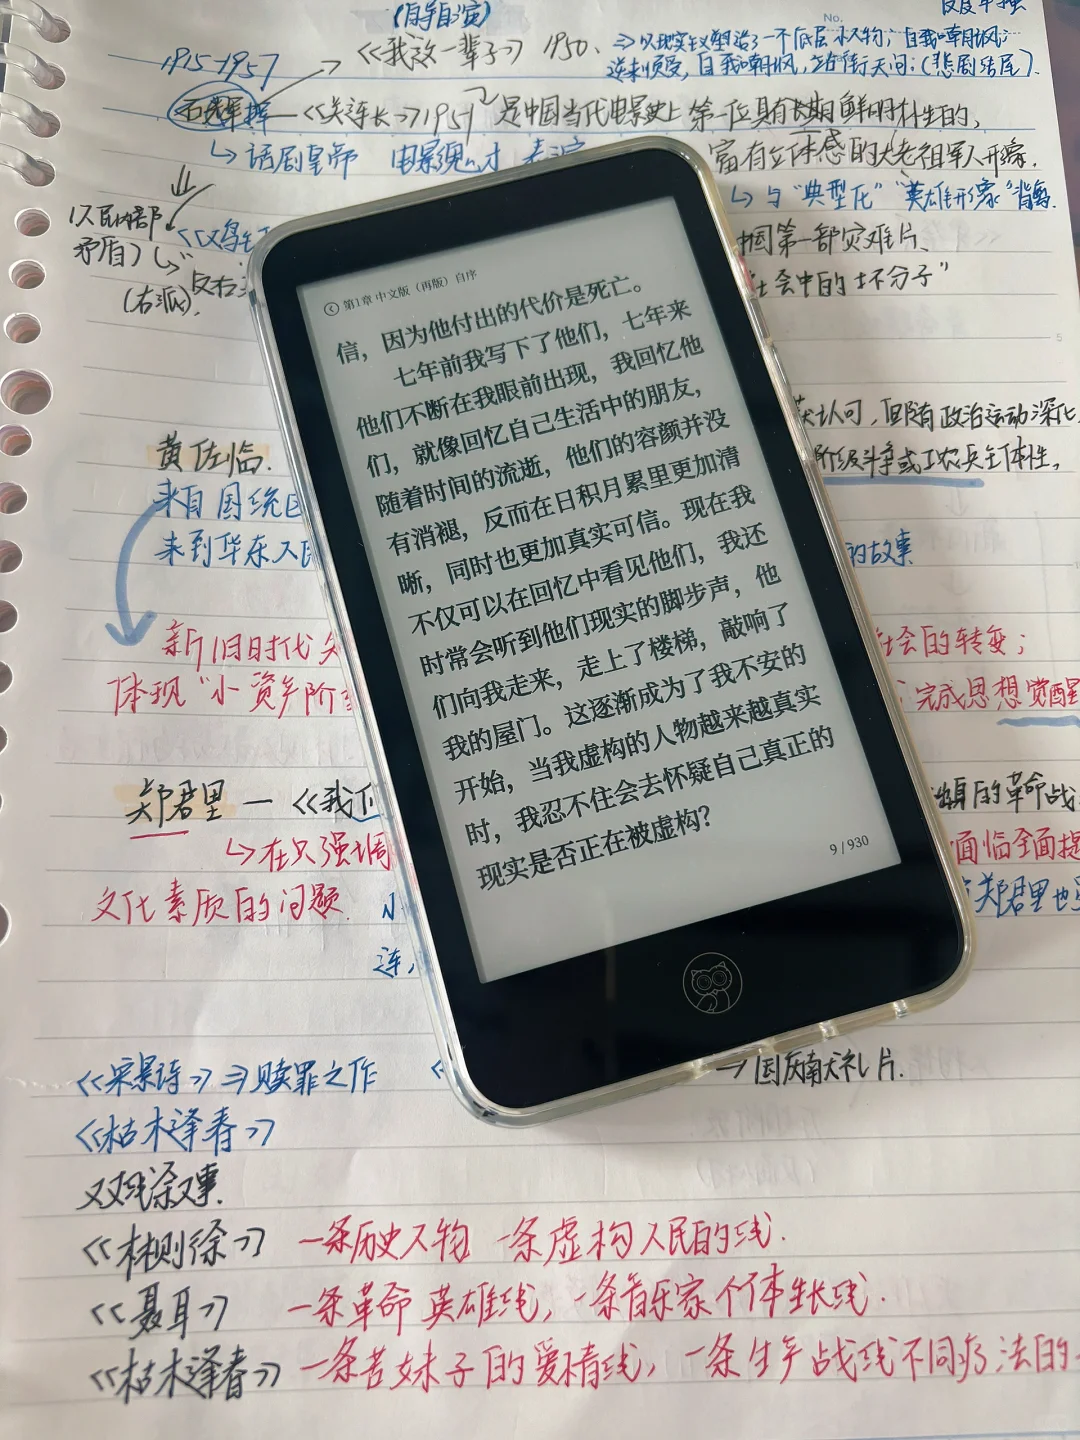 (自导自演)
No.
1915-1957
《我这一辈子》 1950. ⇒以现实主义塑造了一个底层小人物;自我嘲讽;
逆来顺受,自我嘲讽,立在街天问;(悲剧结尾).
石挥 — 《关连长》1951 是中国当代电影史上第一位具有长期鲜明朴生的,
↳ 话剧皇帝 电影 富有立体感的大老祖军人形象.
(人民内部 ↳与“典型化”“英雄形象”背离.
矛盾) 中国第一部灾难片、
(右派), 反右 社会中的坏分子”
第1章 中文版（再版）自序
信，因为他付出的代价是死亡。
七年前我写下了他们，七年来
他们不断在我眼前出现，我回忆他
们，就像回忆自己生活中的朋友，
随着时间的流逝，他们的容颜并没
有消褪，反而在日积月累里更加清
晰，同时也更加真实可信。现在我
不仅可以在回忆中看见他们，我还
时常会听到他们现实的脚步声，他
们向我走来，走上了楼梯，敲响了
我的屋门。这逐渐成为了我不安的
开始，当我虚构的人物越来越真实
时，我忍不住会去怀疑自己真正的
现实是否正在被虚构？
9 / 930
认可,但随政治运动深化
黄佐临. 阶级斗争或工农兵主体性,
来自国统区
来到华东人民 的故事
新旧时代 社会的转变;
体现“小资产阶 ;完成思想觉醒
郑君里 — 《我们 的革命战
↳在只强调 面临全面提
文化素质的问题. 郑君里也
连,
→国庆献礼片.
《宋景诗》⇒赎罪之作
《枯木逢春》
双线叙事.
《林则徐》 一条历史人物 一条虚构人民的线.
《聂耳》 一条革命英雄线,一条音乐家个体生长线.
《枯木逢春》 一条苦妹子的爱情线,一条生产战线不同方法的